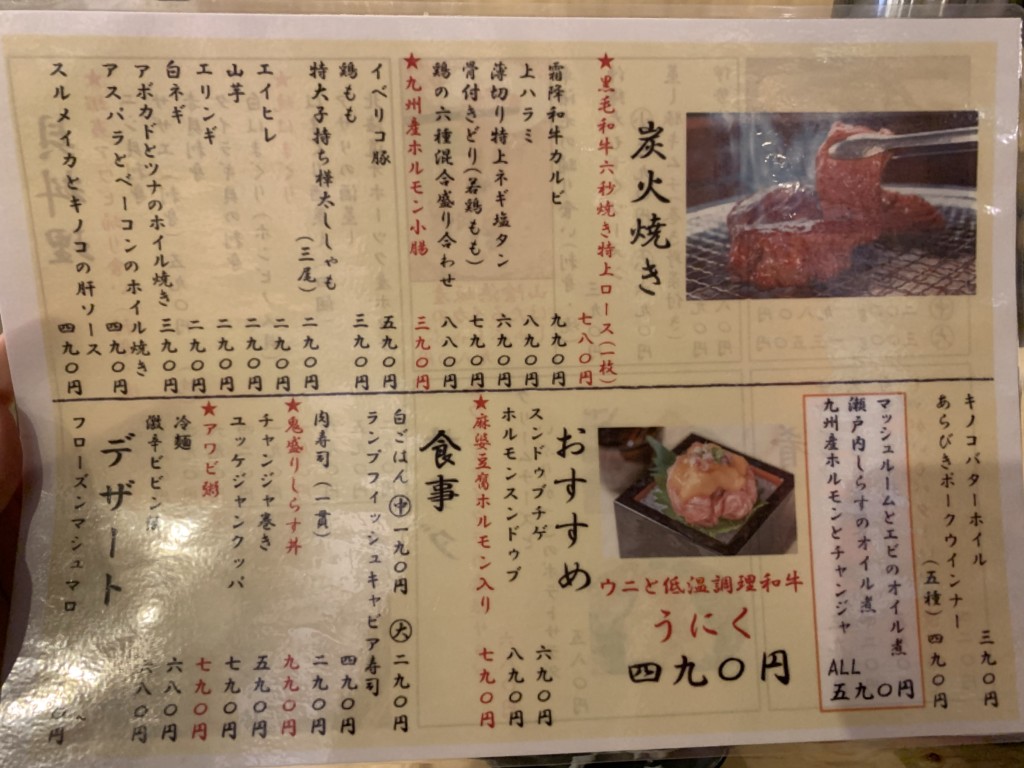 炭火焼き
★黒毛和牛六秒焼き特上ロース(一枚) 七八〇円
霜降和牛カルビ 九九〇円
上ハラミ 八九〇円
薄切り特上ネギ塩タン 六九〇円
骨付きどり(若鶏もも) 七九〇円
鶏の六種混合盛り合わせ 八八〇円
★九州産ホルモン小腸 三九〇円
イベリコ豚 五九〇円
鶏もも 三九〇円
特大子持ち樺太ししゃも(三尾) 二九〇円
エイヒレ 二九〇円
山芋 二九〇円
エリンギ 二九〇円
白ネギ 二九〇円
アボカドとツナのホイル焼き 三九〇円
アスパラとベーコンのホイル焼き 四九〇円
スルメイカとキノコの肝ソース 四九〇円
キノコバターホイル 三九〇円
あらびきポークウインナー(五種) 四九〇円
マッシュルームとエビのオイル煮
瀬戸内しらすのオイル煮
九州産ホルモンとチャンジャ
ALL
五九〇円
ウニと低温調理和牛
うにく
四九〇円
おすすめ
スンドゥブチゲ 六九〇円
ホルモンスンドゥブ 八九〇円
★麻婆豆腐ホルモン入り 七九〇円
食事
白ごはん 中 一九〇円 大 二九〇円
ランプフィッシュキャビア寿司 四九〇円
肉寿司(一貫) 二九〇円
★鬼盛りしらす丼 九九〇円
チャンジャ巻き 五九〇円
ユッケジャンクッパ 七九〇円
★アワビ粥 七九〇円
冷麺 六八〇円
激辛ビビン 六八〇円
デザート
フローズンマシュマロ 〇円